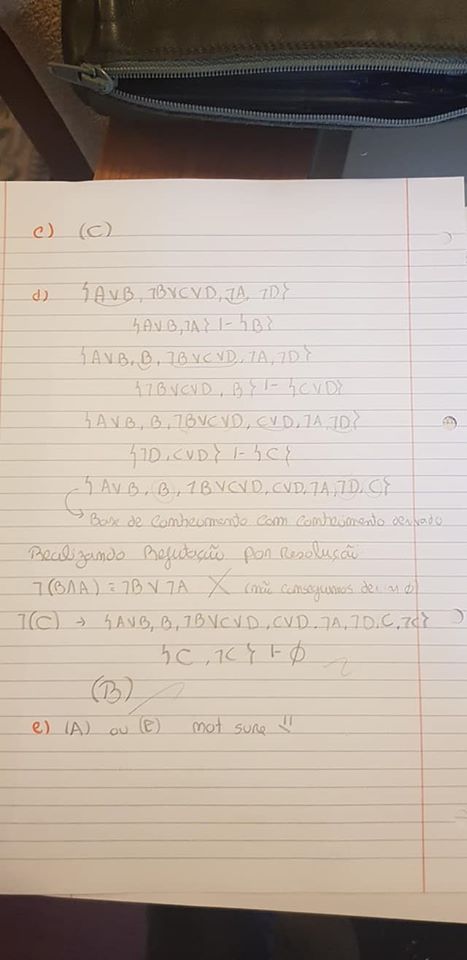 c) (C)
d) {A∨B, ¬B∨C∨D, ¬A, ¬D}
{A∨B, ¬A} |- {B}
{A∨B, B, ¬B∨C∨D, ¬A, ¬D}
{¬B∨C∨D, B} |- {C∨D}
{A∨B, B, ¬B∨C∨D, C∨D, ¬A, ¬D}
{¬D, C∨D} |- {C}
{A∨B, B, ¬B∨C∨D, C∨D, ¬A, ¬D, C}
↳ Base de conhecimento com conhecimento derivado
Realizando Refutação por Resolução
¬(B∧A) = ¬B∨¬A X (não conseguimos ∅)
¬(C) → {A∨B, B, ¬B∨C∨D, C∨D, ¬A, ¬D, C, ¬C}
{C, ¬C} |- ∅
(B)
e) (A) ou (E) not sure